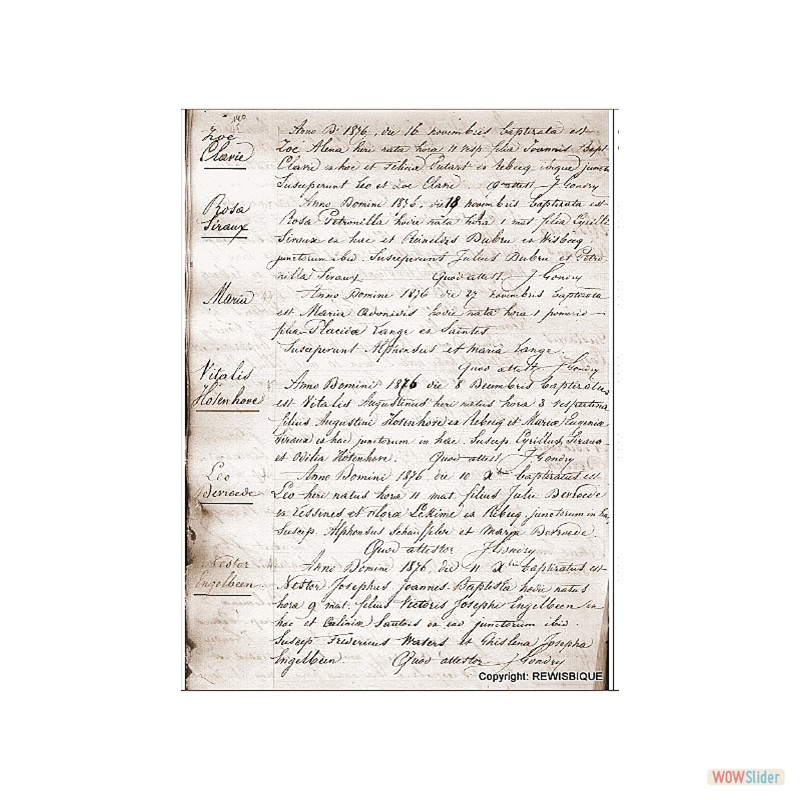 140
Zoe
Clavie
Anno Di 1876, die 16 novembris baptizata est
Zoé Alena heri nata hora 11 vesp. filia Joannis Bapt
Clavie ex hac et ex Rebecq ibique junct
Susceperunt Leo et Zoe Clavie. Q attest J Gondry
Rosa
Siraux
Anno Domine 1876, die 18 novembris baptizata est
Rosa Petronilla hodie nata hora 1 mat. filia Cyrilli
Siraux ex hac et Reineldis Dubru ex Wisbecq
junctorum ibid. Susceperunt Julius Dubru et Petro
nilla Siraux Quod attest J Gondry
Maria
Anno Domine 1876 die 27 novembris baptizata
est Maria hodie nata hora 1 pomerid
filia Placidæ Lange ex Saintes
Susceperunt Alphonsus et Maria Lange.
Quod attest J Gondry
Vitalis
Hosenhove
Anno Domini 1876 die 8 Decembris baptizatus
est Vitalis Augustinus heri natus hora 3 vespertina
filius Augustini Hosenhove ex Rebecq et Mariæ Eugeniæ
Siraux ex hac junctorum in hac. Suscep. Cyrillus Siraux
et Odilia Hosenhove. Quod attest J Gondry
Leo
Derroede
Anno Domini 1876, die 10 Xbris baptizatus est
Leo heri natus hora 11 mat. filius Julii Derroede
ex Lessines et Flora ex Rebecq, junctorum in hac
Suscep. Alphonsus et Maria Derroede.
Quod attestor J Gondry
Nestor
Engelbeen
Anno Domine 1876, die 11 Xbris baptizatus est
Nestor Josephus Joannes Baptista hodie natus
hora 9 mat. filius Victoris Josephi Engelbeen ex
hac et Sautois ex ead junctorum ibid.
Suscep Fredericus Waters et Ghislena Josepha
Engelbeen. Quod attestor J Gondry
Copyright: REWISBIQUE
WOWSlider